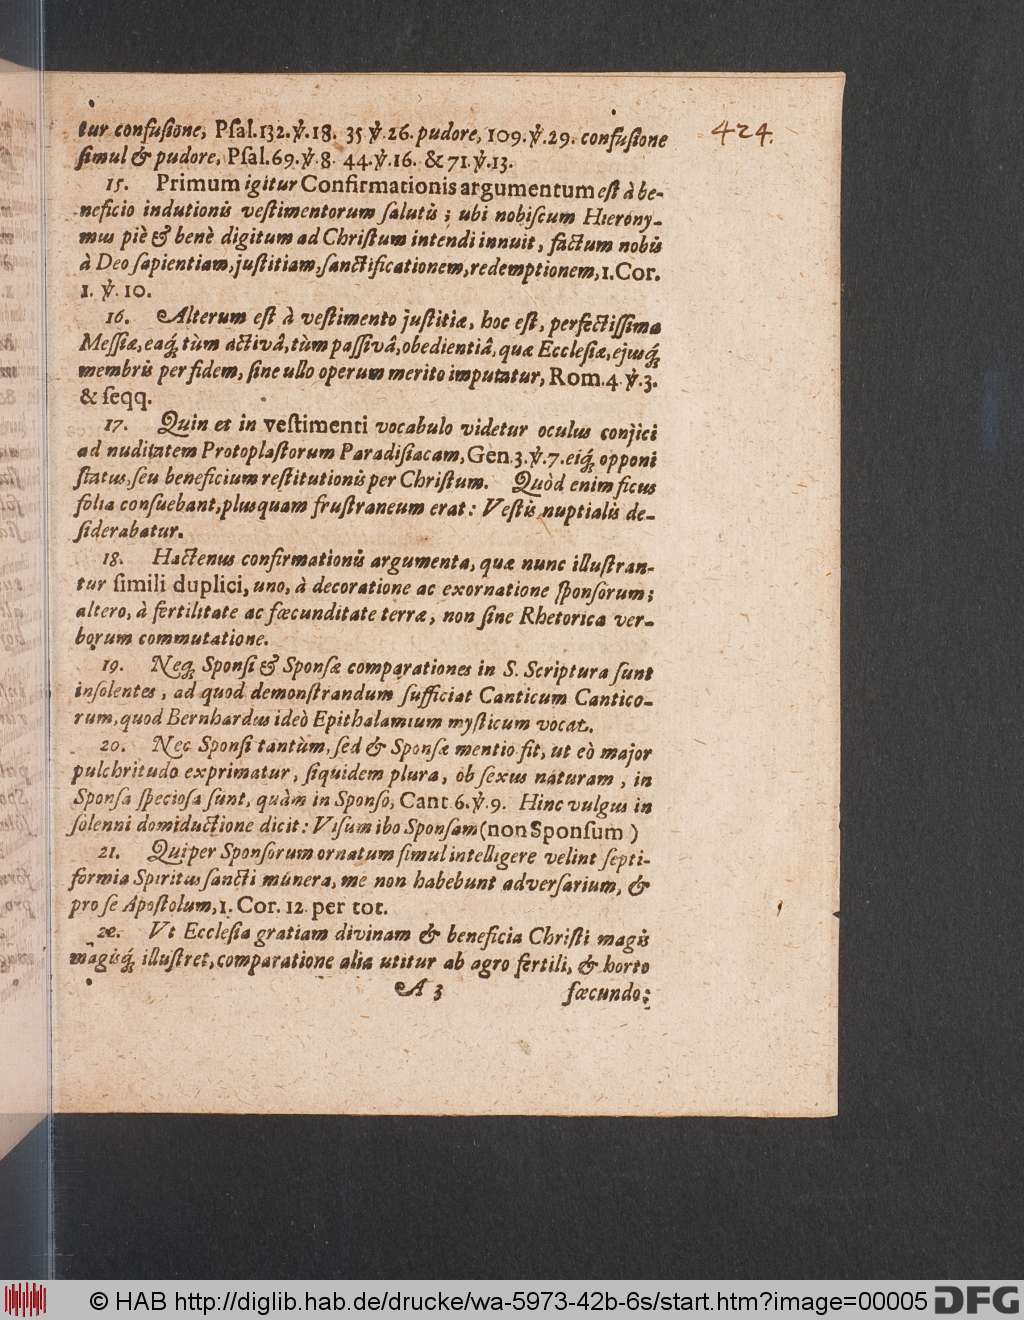 tur confusione, Psal.132.℣.18. 35 ℣.26. pudore, 109.℣.29. confusione
424.
simul & pudore, Psal.69.℣.8. 44.℣.16. & 71.℣.13.
15. Primum igitur Confirmationis argumentum est à be-
neficio indutionis vestimentorum salutis; ubi nobiscum Hierony-
mus piè & benè digitum ad Christum intendi innuit, factum nobis
à Deo sapientiam, justitiam, sanctificationem, redemptionem, 1. Cor.
1. ℣. 10.
16. Alterum est à vestimento justitiæ, hoc est, perfectissima
Messiæ, eaq́; tùm activâ, tùm passivâ, obedientiâ, quæ Ecclesiæ, ejusq́;
membris per fidem, sine ullo operum merito imputatur, Rom.4.℣.3.
& seqq.
17. Quin et in vestimenti vocabulo videtur oculus conjici
ad nuditatem Protoplastorum Paradisiacam, Gen.3.℣.7. eiq́; opponi
status, seu beneficium restitutionis per Christum. Quòd enim ficus
folia consuebant, plusquam frustraneum erat: Vestis nuptialis de-
siderabatur.
18. Hactenus confirmationis argumenta, quæ nunc illustran-
tur simili duplici, uno, à decoratione ac exornatione sponsorum;
altero, à fertilitate ac fœcunditate terræ, non sine Rhetorica ver-
borum commutatione.
19. Neq; Sponsi & Sponsæ comparationes in S. Scriptura sunt
insolentes, ad quod demonstrandum sufficiat Canticum Cantico-
rum, quod Bernhardus ideò Epithalamium mysticum vocat.
20. Nec Sponsi tantùm, sed & Sponsæ mentio fit, ut eò major
pulchritudo exprimatur, siquidem plura, ob sexus naturam, in
Sponsa speciosa sunt, quàm in Sponso, Cant.6.℣.9. Hinc vulgus in
solenni domiductione dicit: Visum ibo Sponsam (non Sponsum)
21. Qui per Sponsorum ornatum simul intelligere velint septi-
formia Spiritus sancti múnera, me non habebunt adversarium, &
pro se Apostolum, 1. Cor. 12. per tot.
22. Vt Ecclesia gratiam divinam & beneficia Christi magis
magisq́; illustret, comparatione alia utitur ab agro fertili, & horto
A 3 fœcundo;
© HAB http://diglib.hab.de/drucke/wa-5973-42b-6s/start.htm?image=00005 DFG